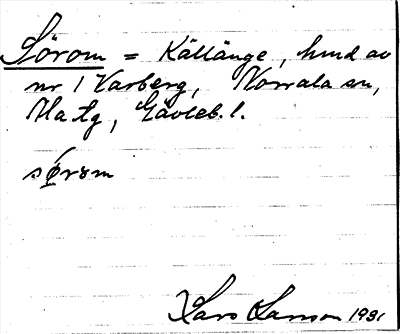 Sörom = Källänge, hmd av
nr 1 Varberg, Norrala sn,
Ha tg, Gävleb. l.
sørøm
Lars Larsson 1931